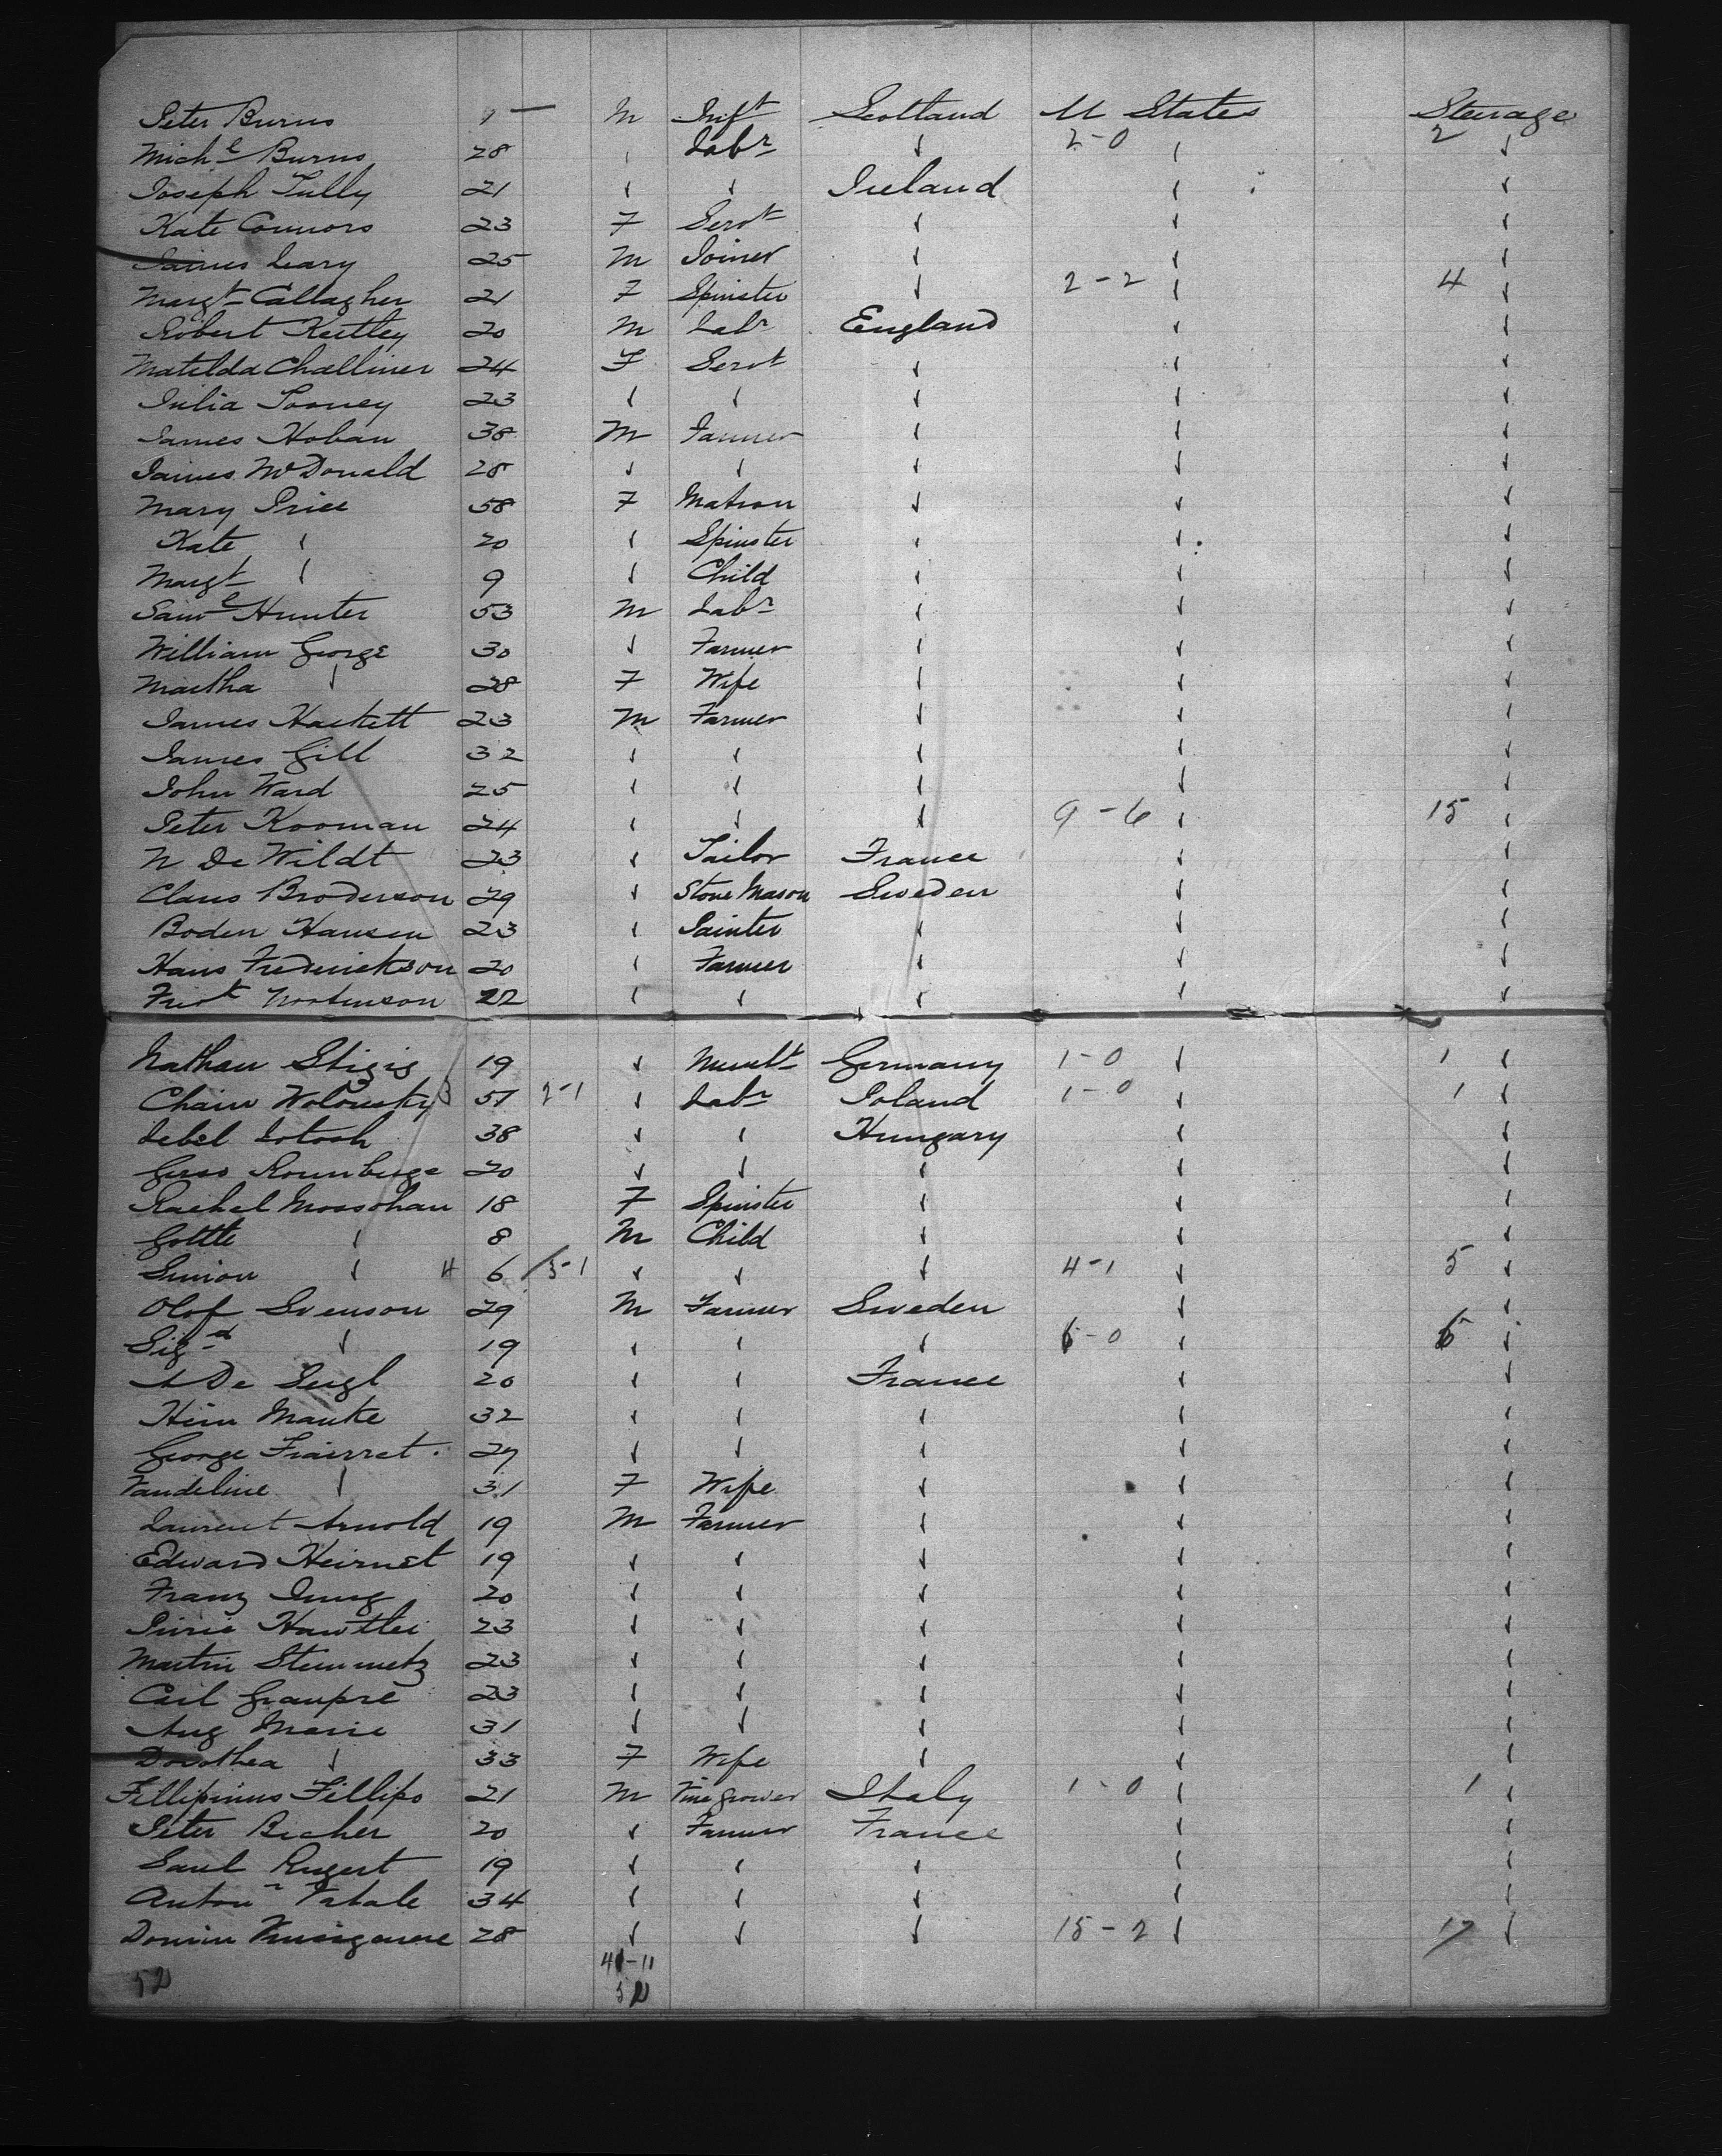 Peter Burns 1 — M Inft Scotland U States Steerage
Michl Burns 28 ✓ Labr ✓ 2-0 ✓ 2 ✓
Joseph Tully 21 ✓ ✓ Ireland ✓ ✓
Kate Connors 23 F Servt ✓ ✓ ✓
James Leary 25 M Joiner ✓ ✓ ✓
Margt Callagher 21 F Spinster ✓ 2-2 ✓ 4 ✓
Robert Keitley 20 M Labr England ✓ ✓
Matilda Challiner 24 F Servt ✓ ✓ ✓
Julia Tooney 23 ✓ ✓ ✓ ✓ ✓
James Hoban 38 M Farmer ✓ ✓ ✓
James McDonald 28 ✓ ✓ ✓ ✓ ✓
Mary Price 58 F Matron ✓ ✓ ✓
Kate ✓ 20 ✓ Spinster ✓ ✓ ✓
Margt ✓ 9 ✓ Child ✓ ✓ ✓
Saml Hunter 53 M Labr ✓ ✓ ✓
William George 30 ✓ Farmer ✓ ✓ ✓
Martha ✓ 28 F Wife ✓ ✓ ✓
James Hackett 23 M Farmer ✓ ✓ ✓
James Gill 32 ✓ ✓ ✓ ✓ ✓
John Ward 25 ✓ ✓ ✓ ✓ ✓
Peter Kooman 24 ✓ ✓ ✓ 9-6 ✓ 15 ✓
N De Wildt 23 ✓ Tailor France ✓ ✓
Claus Broderson 29 ✓ Stone Mason Sweden ✓ ✓
Boden Hansen 23 ✓ Painter ✓ ✓ ✓
Hans Frederickson 20 ✓ Farmer ✓ ✓ ✓
22 ✓ ✓ ✓ ✓ ✓
Nathan 19 ✓ Germany 1-0 ✓ 1 ✓
Chaim 51 2-1 ✓ Labr Poland 1-0 ✓ 1 ✓
Lebel 38 ✓ ✓ Hungary ✓ ✓
20 ✓ ✓ ✓ ✓ ✓
Rachel Mossohan 18 F Spinster ✓ ✓ ✓
Gottle ✓ 8 M Child ✓ ✓ ✓
Simon ✓ 4 6 /3-1 ✓ ✓ ✓ 4-1 ✓ 5 ✓
Olof Svenson 29 M Farmer Sweden ✓ ✓
Sigd ✓ 19 ✓ ✓ ✓ 6-0 ✓ 6 ✓
A De 20 ✓ ✓ France ✓ ✓
Manke 32 ✓ ✓ ✓ ✓ ✓
George Fraisret 29 ✓ ✓ ✓ ✓ ✓
Vandeline ✓ 31 F Wife ✓ ✓ ✓
Laurent Arnold 19 M Farmer ✓ ✓ ✓
Edward Heirnet 19 ✓ ✓ ✓ ✓ ✓
Franz Jung 20 ✓ ✓ ✓ ✓ ✓
23 ✓ ✓ ✓ ✓ ✓
Martin Steinmetz 23 ✓ ✓ ✓ ✓ ✓
Carl Graupre 23 ✓ ✓ ✓ ✓ ✓
Aug Marie 31 ✓ ✓ ✓ ✓ ✓
Dorothea ✓ 33 F Wife ✓ ✓ ✓
Fillipinus Fillipo 21 M Vine Grower Italy 1-0 ✓ 1 ✓
Peter Becher 20 ✓ Farmer France ✓ ✓
Rugert 19 ✓ ✓ ✓ ✓ ✓
34 ✓ ✓ ✓ ✓ ✓
28 ✓ ✓ ✓ 15-2 ✓ 17 ✓
41-11
52 52